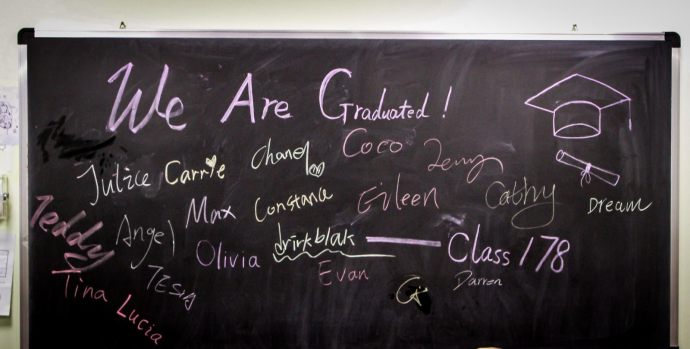 We Are Graduated!
Julice Carrie Chanel Coco Jenny
Max Constance Eileen Cathy Dream
Teddy Angel Olivia drinkblak — Class 178
Tina Lucia Evan Darren